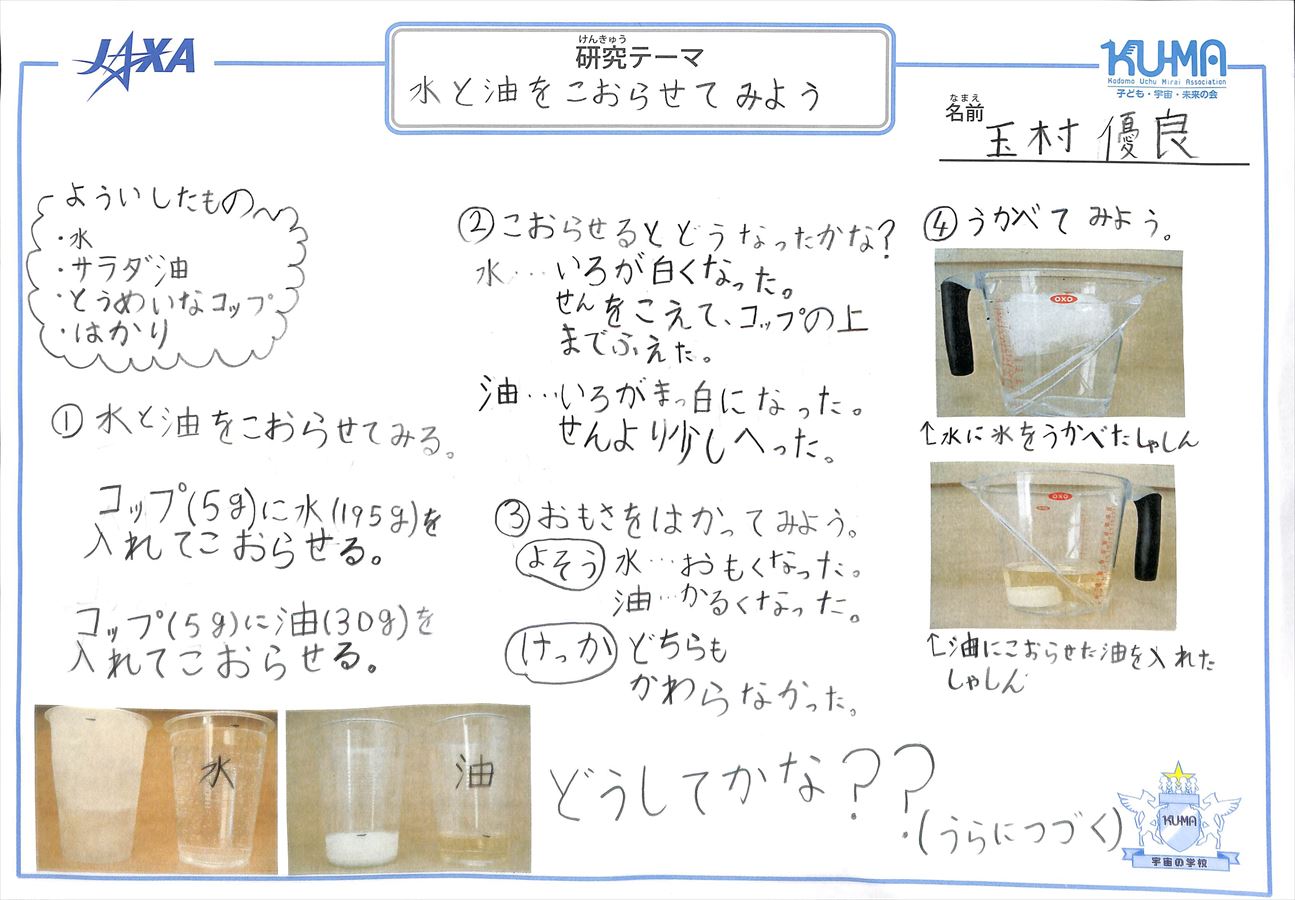 JAXA
けんきゅう
研究テーマ
水と油をこおらせてみよう
KU-MA
Kodomo Uchu Mirai Association
子ども・宇宙・未来の会
なまえ
名前
玉村 優良
よういしたもの
・水
・サラダ油
・とうめいなコップ
・はかり
①水と油をこおらせてみる。
コップ(5g)に水(195g)を
入れてこおらせる。
コップ(5g)に油(30g)を
入れてこおらせる。
水
油
②こおらせるとどうなったかな?
水…いろが白くなった。
せんをこえて、コップの上
までふえた。
油…いろがまっ白になった。
せんより少しへった。
③おもさをはかってみよう。
よそう 水…おもくなった。
油…かるくなった。
けっか どちらも
かわらなかった。
④うかべてみよう。
OXO
↑水に氷をうかべたしゃしん
OXO
↑油にこおらせた油を入れた
しゃしん
どうしてかな??
(うらにつづく)
KU-MA
宇宙の学校